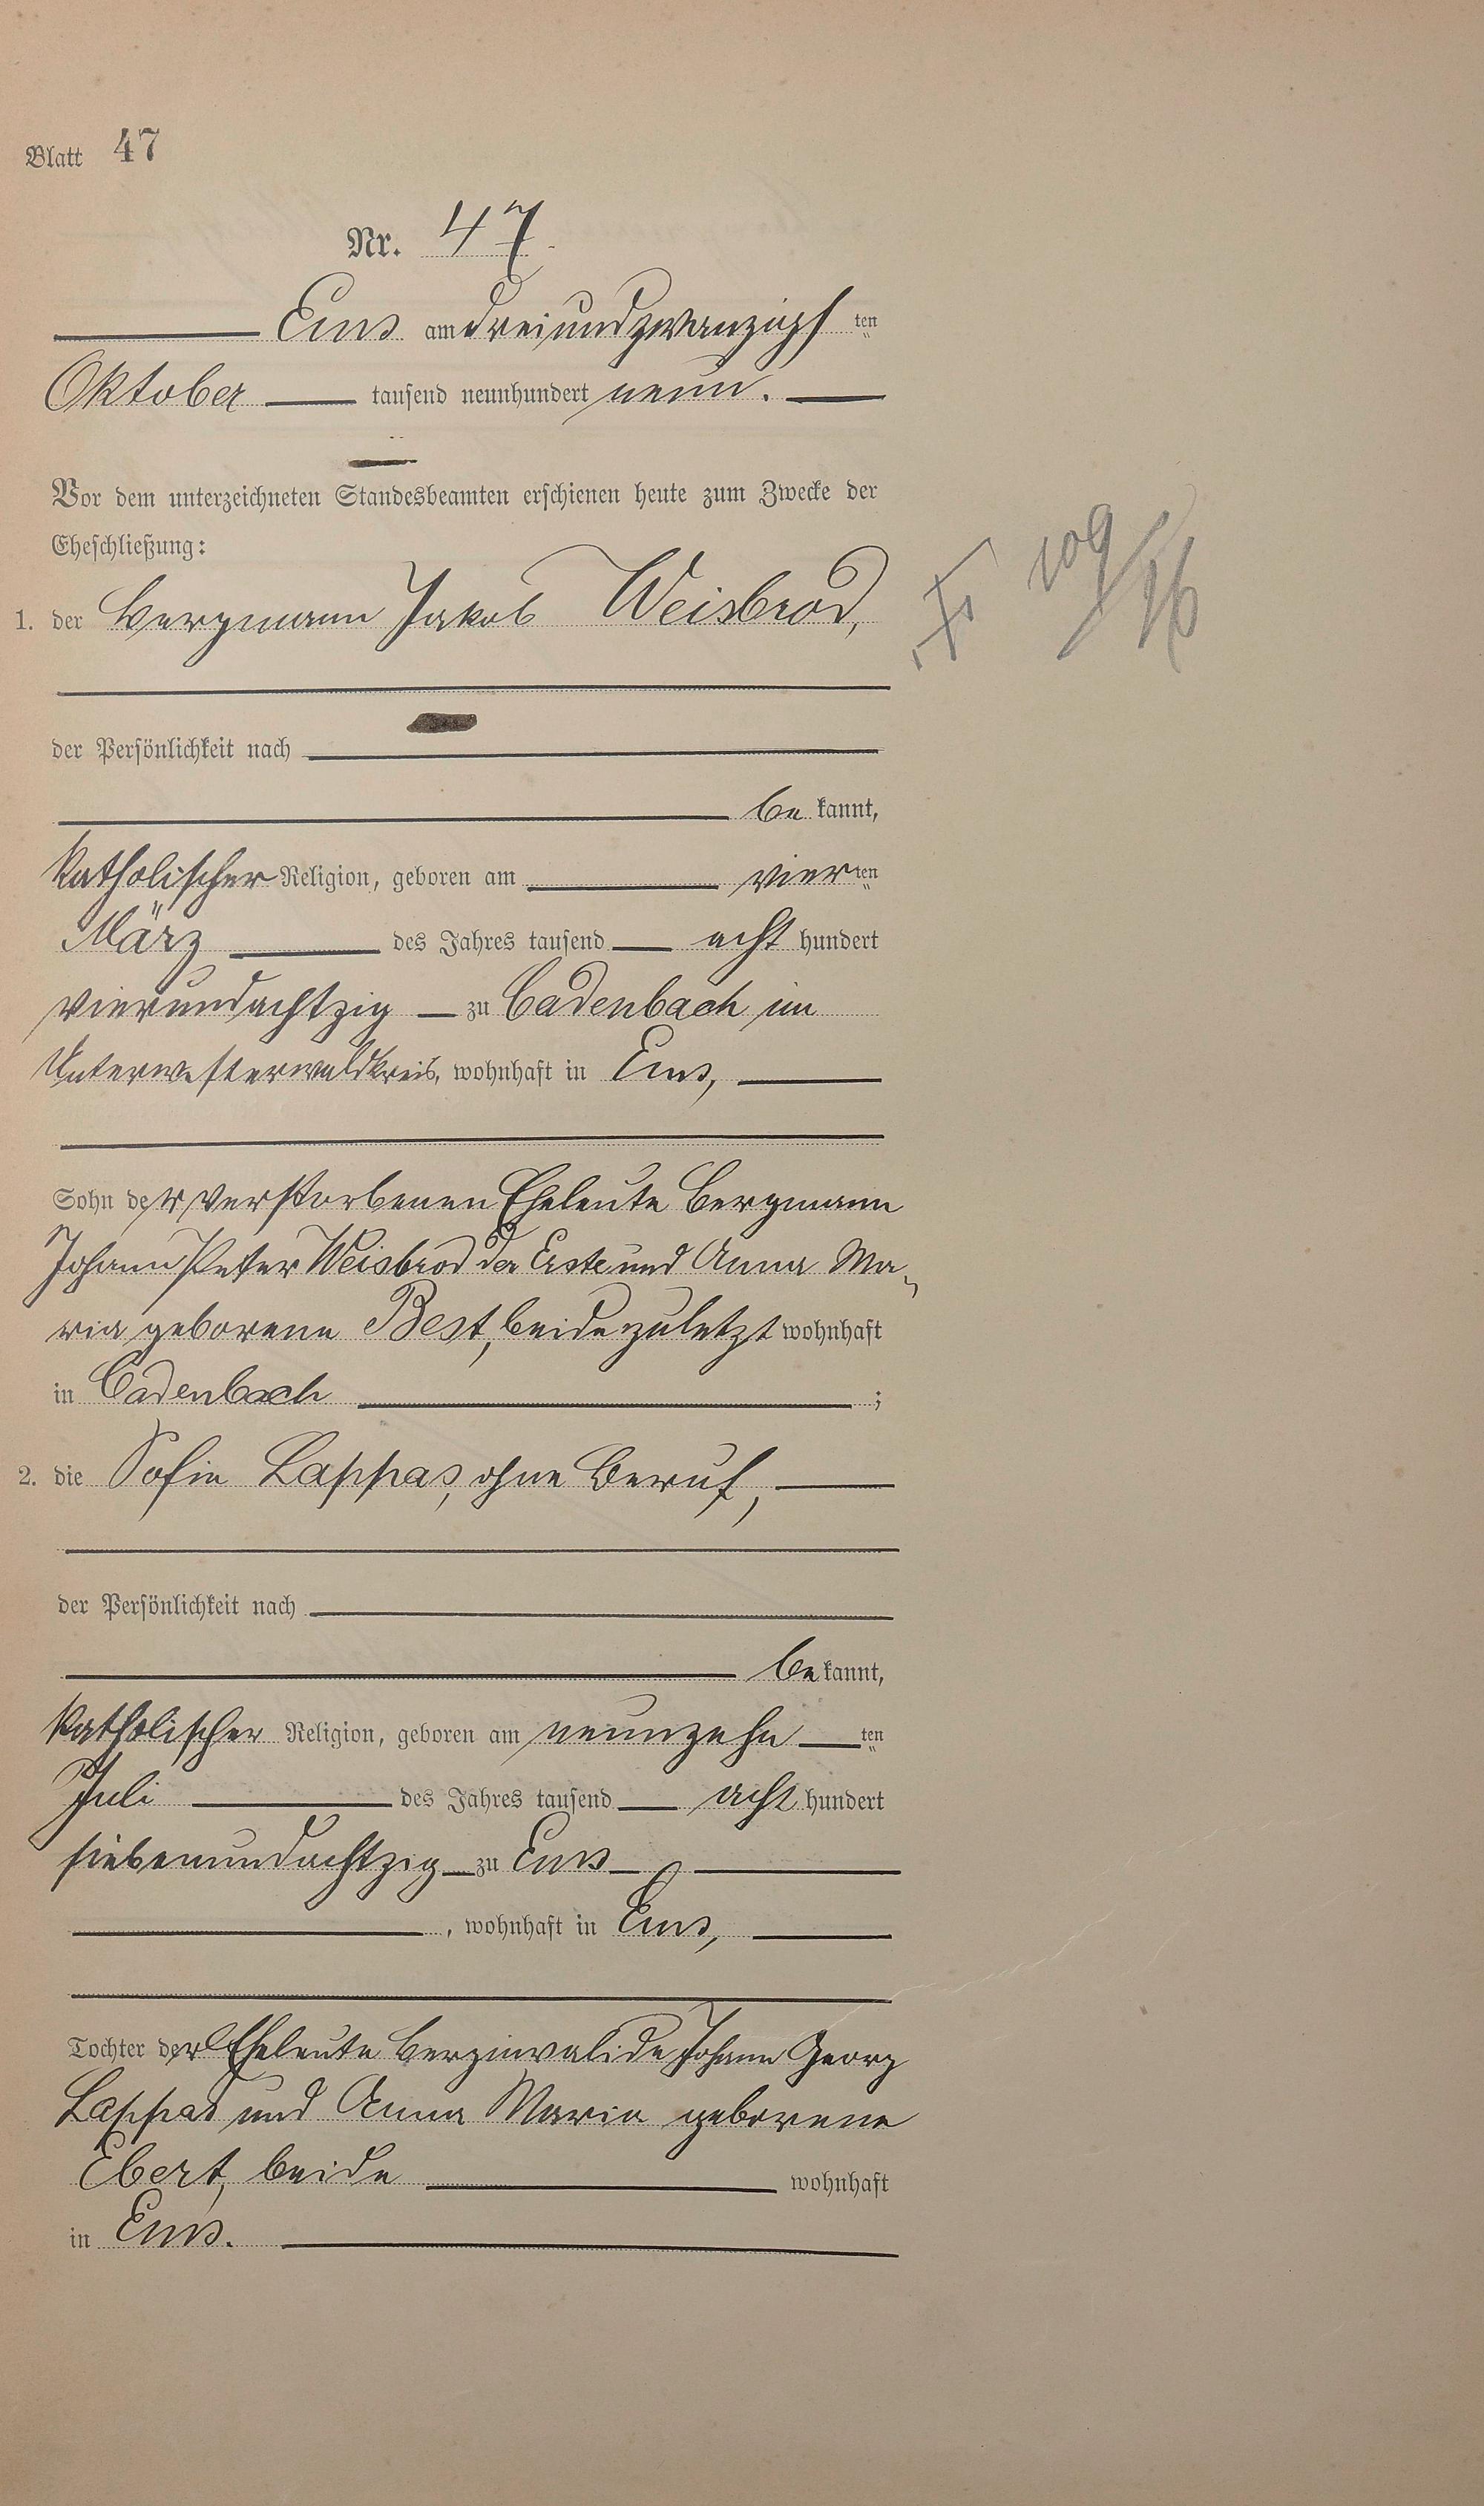 Blatt 47
Nr. 47.
Ems am dreiundzwanzigsten
Oktober tausend neunhundert neun.
Vor dem unterzeichneten Standesbeamten erschienen heute zum Zwecke der
Eheschließung:
1. der Bergmann Jakob Weisbrod,
109/16
der Persönlichkeit nach
bekannt,
katholischer Religion, geboren am vierten
März des Jahres tausend acht hundert
vierundachtzig zu Cadenbach im
Unterwesterwaldkreis, wohnhaft in Ems,
Sohn der verstorbenen Eheleute Bergmann
Johann Peter Weisbrod der Erste und Anna Ma-
ria geborene Best, beide zuletzt wohnhaft
in Cadenbach ;
2. die Sofie Lappas, ohne Beruf,
der Persönlichkeit nach
bekannt,
katholischer Religion, geboren am neunzehnten
Juli des Jahres tausend acht hundert
siebenundachtzig zu Ems
, wohnhaft in Ems,
Tochter der Eheleute Berginvalide Johann Georg
Lappas und Anna Maria geborene
Ebert, beide wohnhaft
in Ems.